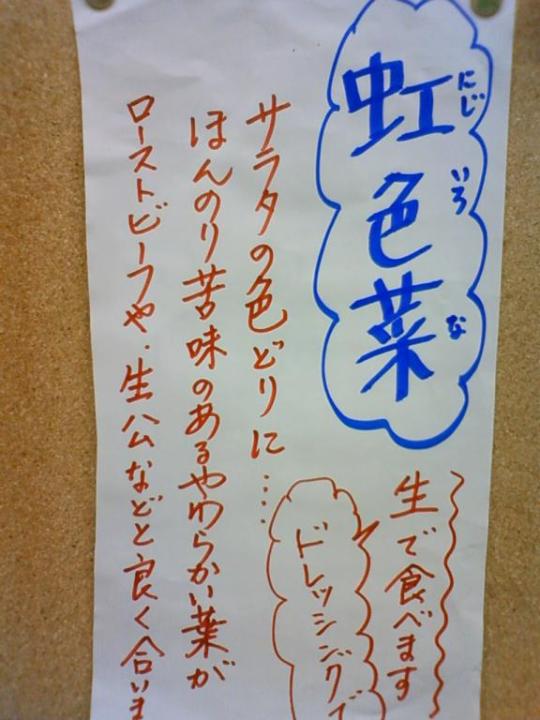 虹色菜
にじいろな
生で食べます
ドレッシングで
サラタの色どりに....
ほんのり苦味のあるやわらかい葉が
ローストビーフや.生ハムなどと良く合いま